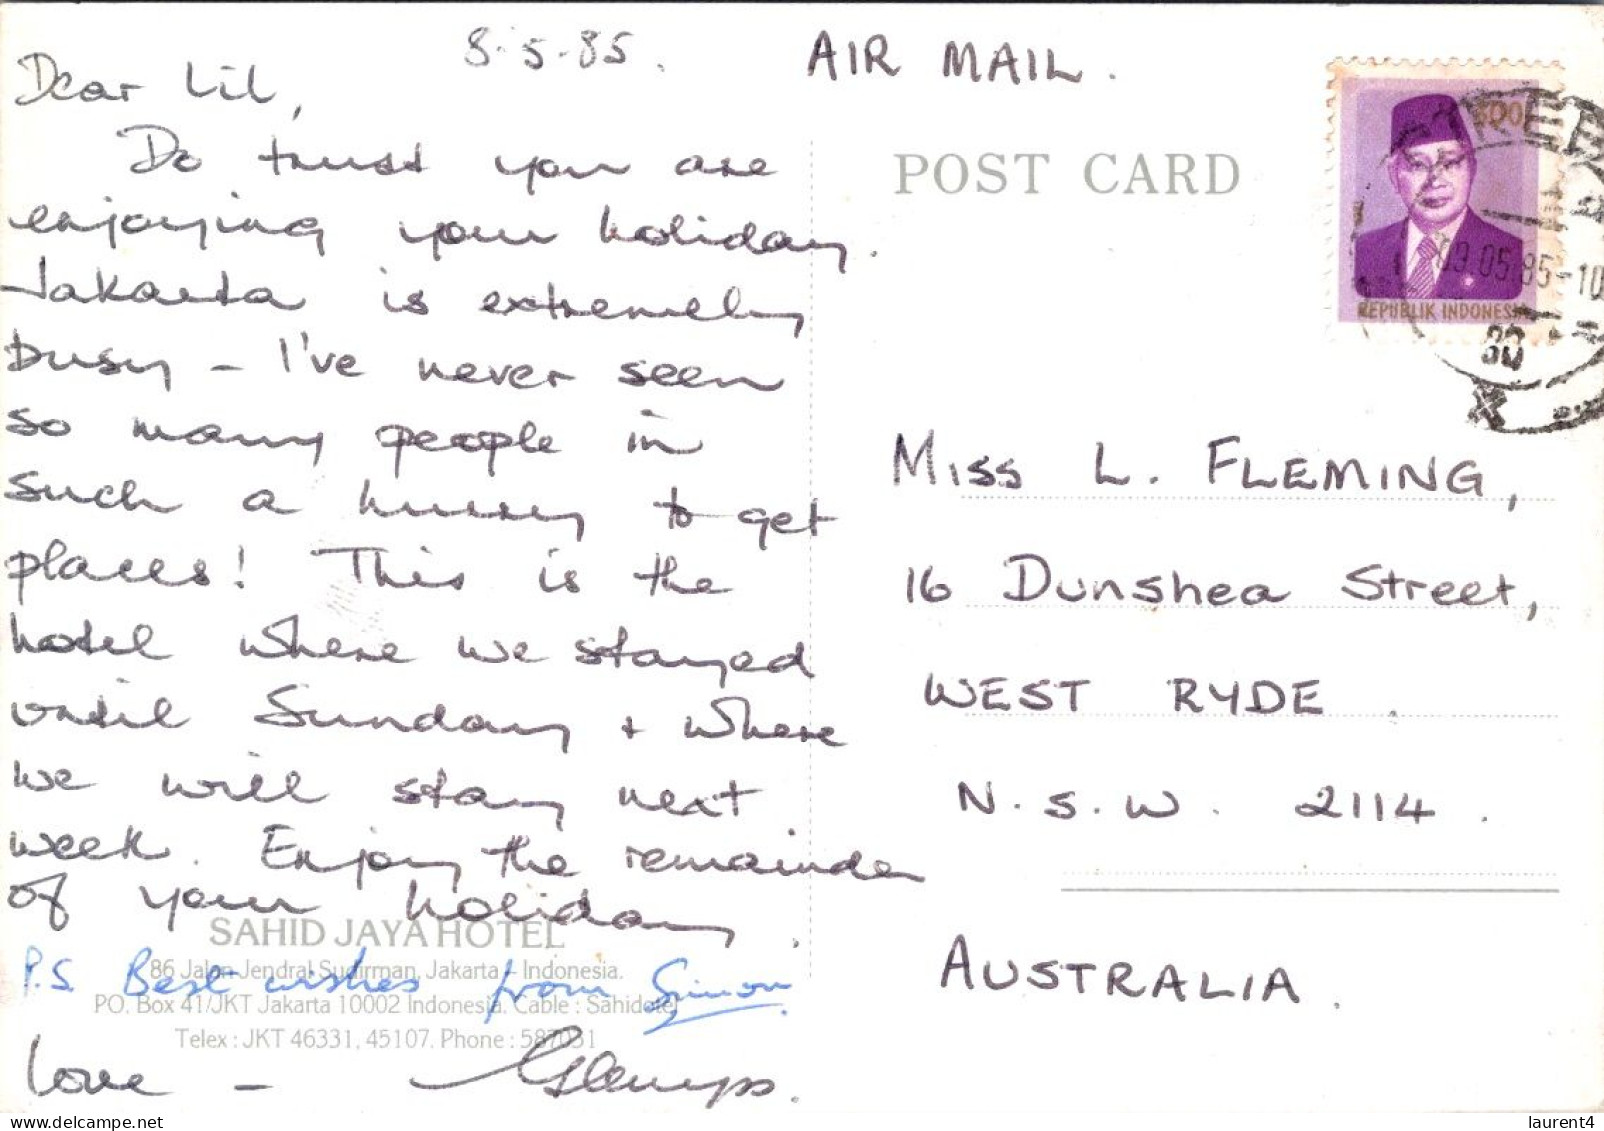 8-5-85.
AIR MAIL.
Dear Lil,
Do trust you are
enjoying your holiday.
Jakarta is extremely
busy - I've never seen
so many people in
such a hurry to get
places! This is the
hotel where we stayed
until Sunday + where
we will stay next
week. Enjoy the remainder
of your holiday.
P.S. Best wishes from Simon
Love -
SAHID JAYA HOTEL
86 Jalan Jendral Sudirman, Jakarta - Indonesia.
PO. Box 41/JKT Jakarta 10002 Indonesia. Cable : Sahidotel
Telex : JKT 46331, 45107. Phone : 587031
POST CARD
REPUBLIK INDONESIA
09.05.85-10
Miss L. FLEMING,
16 Dunshea Street,
WEST RYDE.
N.S.W. 2114.
AUSTRALIA.
delcampe.net
laurent4